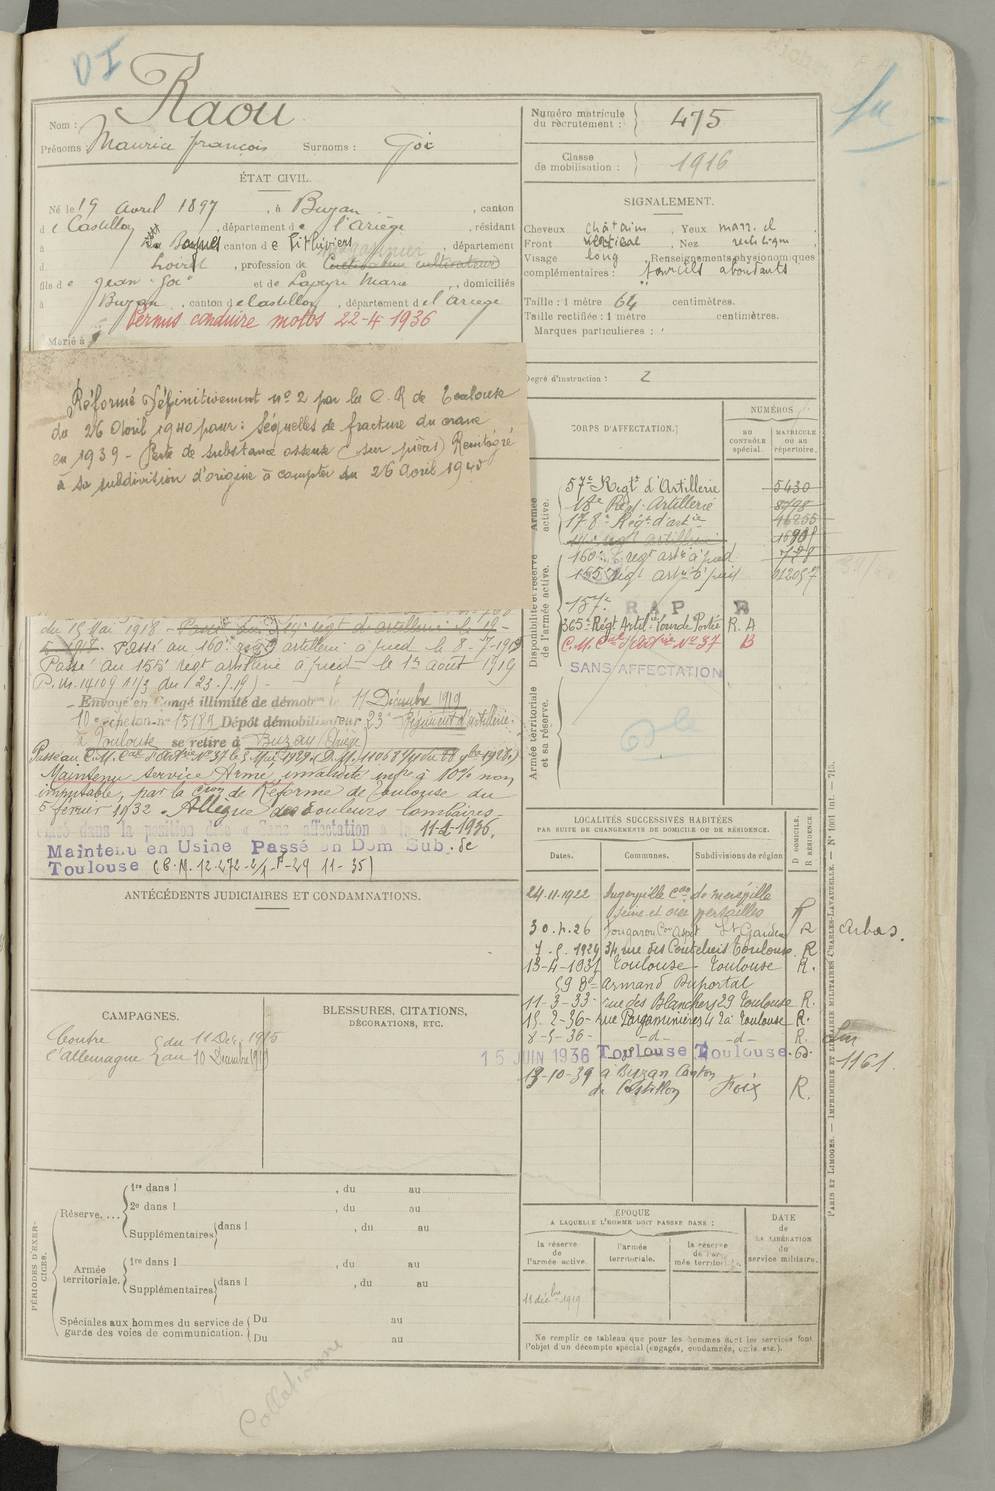 DI
Nom : Raou
Prénoms : Maurice françois Surnoms : Goï
ÉTAT CIVIL.
Né le 19 avril 1897, à Buzan, canton
de Castillon, département de l'Ariège, résidant
à canton de Pithiviers, département
d Loiret, profession de cultivateur
fils de Jean Goï et de Lapeyre Marie, domiciliés
à Buzan, canton de Castillon, département de l'ariège
Permis conduire motos 22-4-1936
Marié à
Réformé Définitivement nº 2 par la C. R de Toulouse
du 26 Avril 1940 pour : Séquelles de fracture du crane
en 1939 - Perte de substance osseuse (sur pièces) Reintégré
à sa subdivision d'origine à compter du 26 Avril 1940
du 15 Mai 1918 - Passé au 14e regt d'artillerie le 12-
Passé au 160e regt artillerie à pied le 8-7-1918
Passé au 155e regt artillerie à pied - le 1er août 1919
(D.M. 14109 11/3 du 23.7.19) -
Envoyé en Congé illimité de démobon le 11 Décembre 1919
10e échelon nº 15189 Dépôt démobilisateur 23e Régiment d'artillerie.
à Toulouse se retire à Buzan (Ariège)
Passé au C.M. Cal d'Artrie Nº 37 le 5 Mai 1929
Maintenu Service Armé, invalidité infre à 10% non
imputable, par la Cion de Réforme de Toulouse du
5 février 1932. Allègue des douleurs lombaires
dans la position dite « Sans affectation » le 11-2-1936.
Maintenu en Usine Passé en Dom Sub. de
Toulouse (C.M. 12.472-2/1-F-29 11-35)
ANTÉCÉDENTS JUDICIAIRES ET CONDAMNATIONS.
CAMPAGNES.
Contre l'Allemagne
du 11 Déc. 1915
au 10 Décembre 1919
BLESSURES, CITATIONS,
DÉCORATIONS, ETC.
PÉRIODES D'EXERCICES.
Réserve....
1re dans l , du au
2e dans l , du au
Supplémentaires dans l , du au
Armée territoriale.
1re dans l , du au
Supplémentaires dans l , du au
Spéciales aux hommes du service de Du au
garde des voies de communication. Du au
Collationné
Numéro matricule
du recrutement : 475
Classe
de mobilisation : 1916
SIGNALEMENT.
Cheveux châtains, Yeux marr. cl
Front vertical, Nez rectiligne,
Visage long, Renseignements physionomiques
complémentaires : sourcils abondants
Taille : 1 mètre 64 centimètres.
Taille rectifiée : 1 mètre centimètres.
Marques particulières :
Degré d'instruction : 2
CORPS D'AFFECTATION.
NUMÉROS
AU CONTRÔLE spécial.
MATRICULE OU AU répertoire.
Armée active.
Disponibilité et réserve de l'armée active.
Armée territoriale et sa réserve.
57e Regt d'Artillerie 5430
18e Regt Artillerie 8798
178e Régt d'artie 46255
14e regt artillerie
160e regt artie à pied 728
155e Régt artie à pied
157e R A P R
365e Régt Artie Lourde Portée R. A
C.M. Cal d'artrie Nº 37 B
SANS AFFECTATION
LOCALITÉS SUCCESSIVES HABITÉES
PAR SUITE DE CHANGEMENTS DE DOMICILE OU DE RÉSIDENCE.
D DOMICILE.
R RÉSIDENCE
Dates. Communes. Subdivisions de région
24-11-1922 Angerville Con de Meréville
Seine et oise Versailles R
30.4.26 Fougaron Con Aspet St Gaudens R
Arbas.
7.5.1929 34 rue des Couteliers Toulouse R
13-4-1931 Toulouse - Toulouse R.
59 Bd Armand Duportal
11-3-33- rue des Blanchers 29 Toulouse R.
15-2-36- rue Pargaminières 42 à Toulouse R.
8-5-36- -d- -d- R.
15 JUIN 1936 Toulouse Toulouse. D.
1161.
13-10-39 à Buzan Canton
de Castillon Foix R.
ÉPOQUE
A LAQUELLE L'HOMME DOIT PASSER DANS :
DATE
de
LA LIBÉRATION
du
service militaire.
la réserve
de
l'armée active.
l'armée
territoriale.
la réserve
de l'ar-
mée territoriale.
11 décbre 1919
Ne remplir ce tableau que pour les hommes dont les services font
l'objet d'un décompte spécial (engagés, condamnés, omis etc.).
PARIS ET LIMOGES. — IMPRIMERIE ET LIBRAIRIE MILITAIRES CHARLES-LAVAUZELLE. — Nº 1061 int. — 7-15.